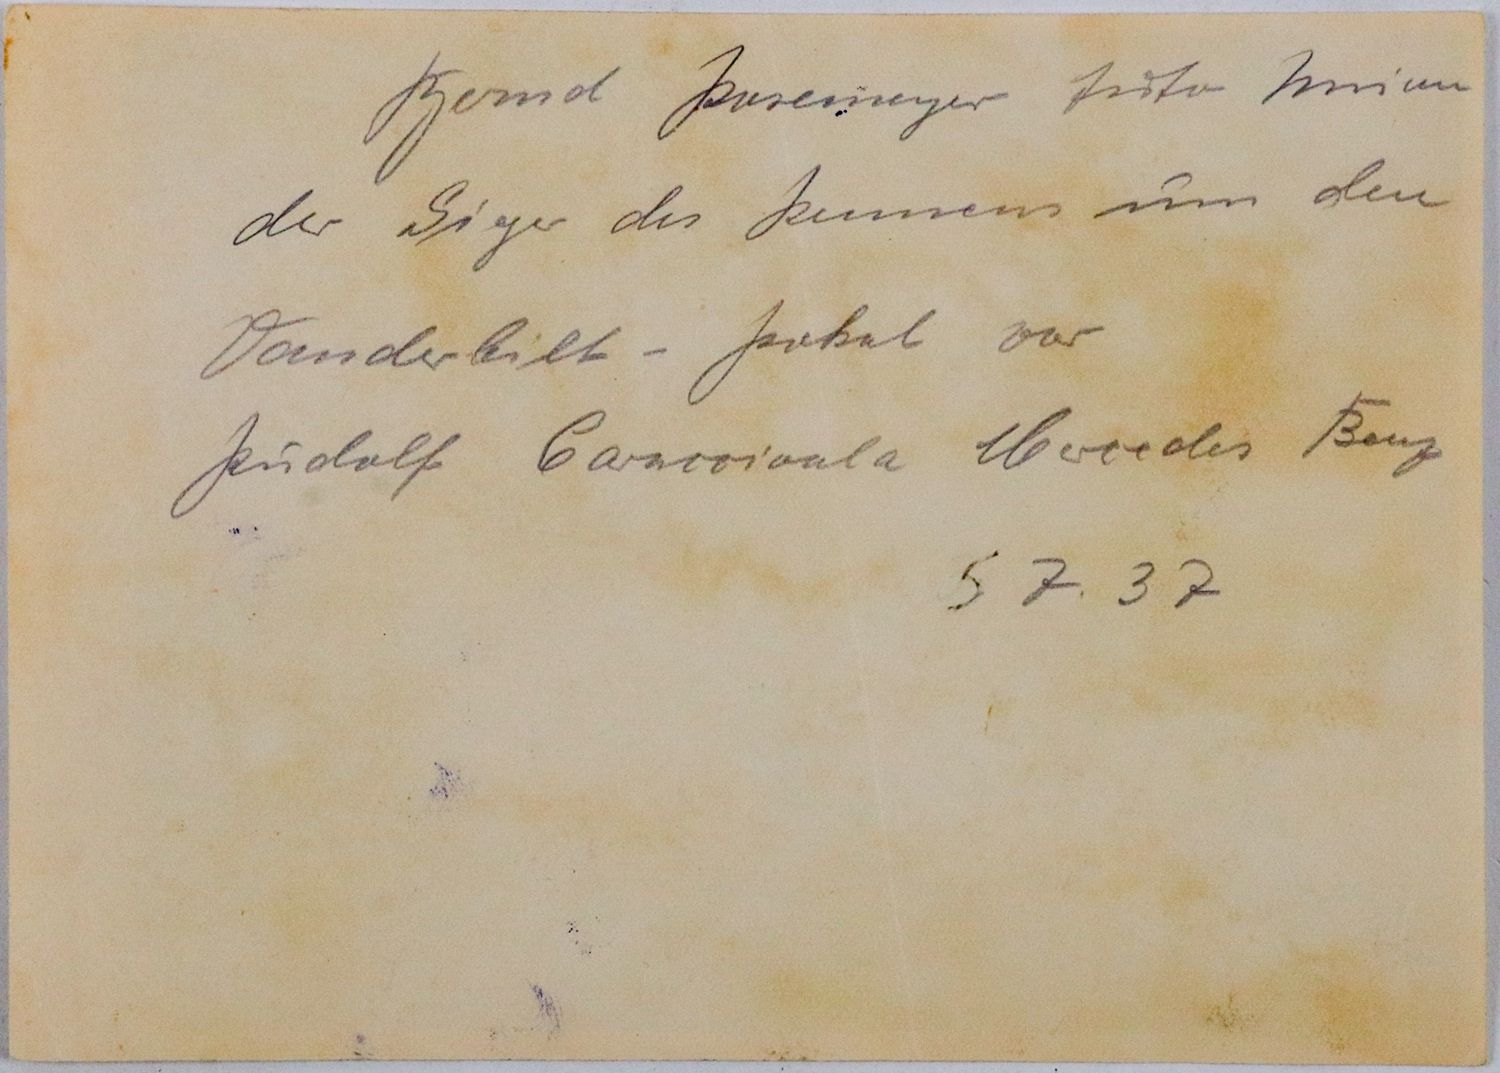 Bernd Rosemeyer Auto Union
der Sieger des Rennens um den
Vanderbilt - Pokal vor
Rudolf Caracciola Mercedes Benz
5 7. 37